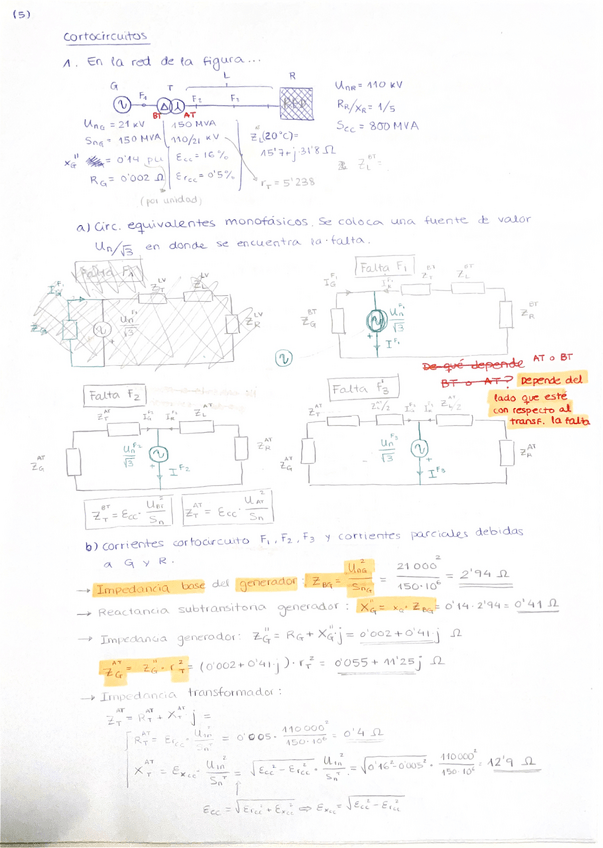 (5)
Cortocircuitos
1. En la red de la figura...
G T L R
F1 F2 F3 RED
BT AT
UnG = 21 kV
SnG = 150 MVA
XG'' = 0'14 pu
RG = 0'002 Ω
(por unidad)
150 MVA
110/21 kV
Ecc = 16%
Ercc = 0'5%
rT = 5'238
ZL''(20°C) =
15'7 + j·31'8 Ω
UnR = 110 kV
RR/XR = 1/5
Scc = 800 MVA
ZL^BT:
a) Circ. equivalentes monofásicos. Se coloca una fuente de valor
Un/√3 en donde se encuentra la falta.
Falta F1
ZT^LV ZL^LV ZR^LV ZG Un^F1/√3
Falta F1
IG^F1 ZT^BT ZL^BT
ZG^BT Un^F1/√3 ZR^BT
I^F1
De qué depende AT o BT
BT o AT? Depende del
lado que este
con respecto al
transf. la falta
Falta F2
ZT^AT IG^F2 IR^F2 ZL^AT
ZG^AT Un^F2/√3 ZR^AT
I^F2
Falta F3
ZT^AT ZL^AT/2 IG^F3 IR^F3 ZL^AT/2
ZG^AT Un^F3/√3 ZR^AT
I^F3
ZT^BT = Ecc · UBT²/Sn ZT^AT = Ecc · UAT²/Sn
b) Corrientes cortocircuito F1, F2, F3 y corrientes parciales debidas
a G y R.
→ Impedancia base del generador: ZBG = UnG²/SnG = 21000²/150·10⁶ = 2'94 Ω
→ Reactancia subtransitoria generador: XG'' = xG · ZBG = 0'14 · 2'94 = 0'41 Ω
→ Impedancia generador: ZG'' = RG + XG''j = 0'002 + 0'41·j Ω
ZG^AT = ZG'' · rT² = (0'002 + 0'41·j) · rT² = 0'055 + 11'25j Ω
→ Impedancia transformador:
ZT^AT = RT^AT + XT^AT j =
RT^AT = Ercc · U1n²/Sn^T = 0'005 · 110000²/150·10⁶ = 0'4 Ω
XT^AT = Excc · U1n²/Sn^T = √(Ecc² − Ercc²) · U1n²/Sn^T = √(0'16² − 0'005²) · 110000²/150·10⁶ = 12'9 Ω
Ecc = √(Ercc² + Excc²) ⇔ Excc = √(Ecc² − Ercc²)